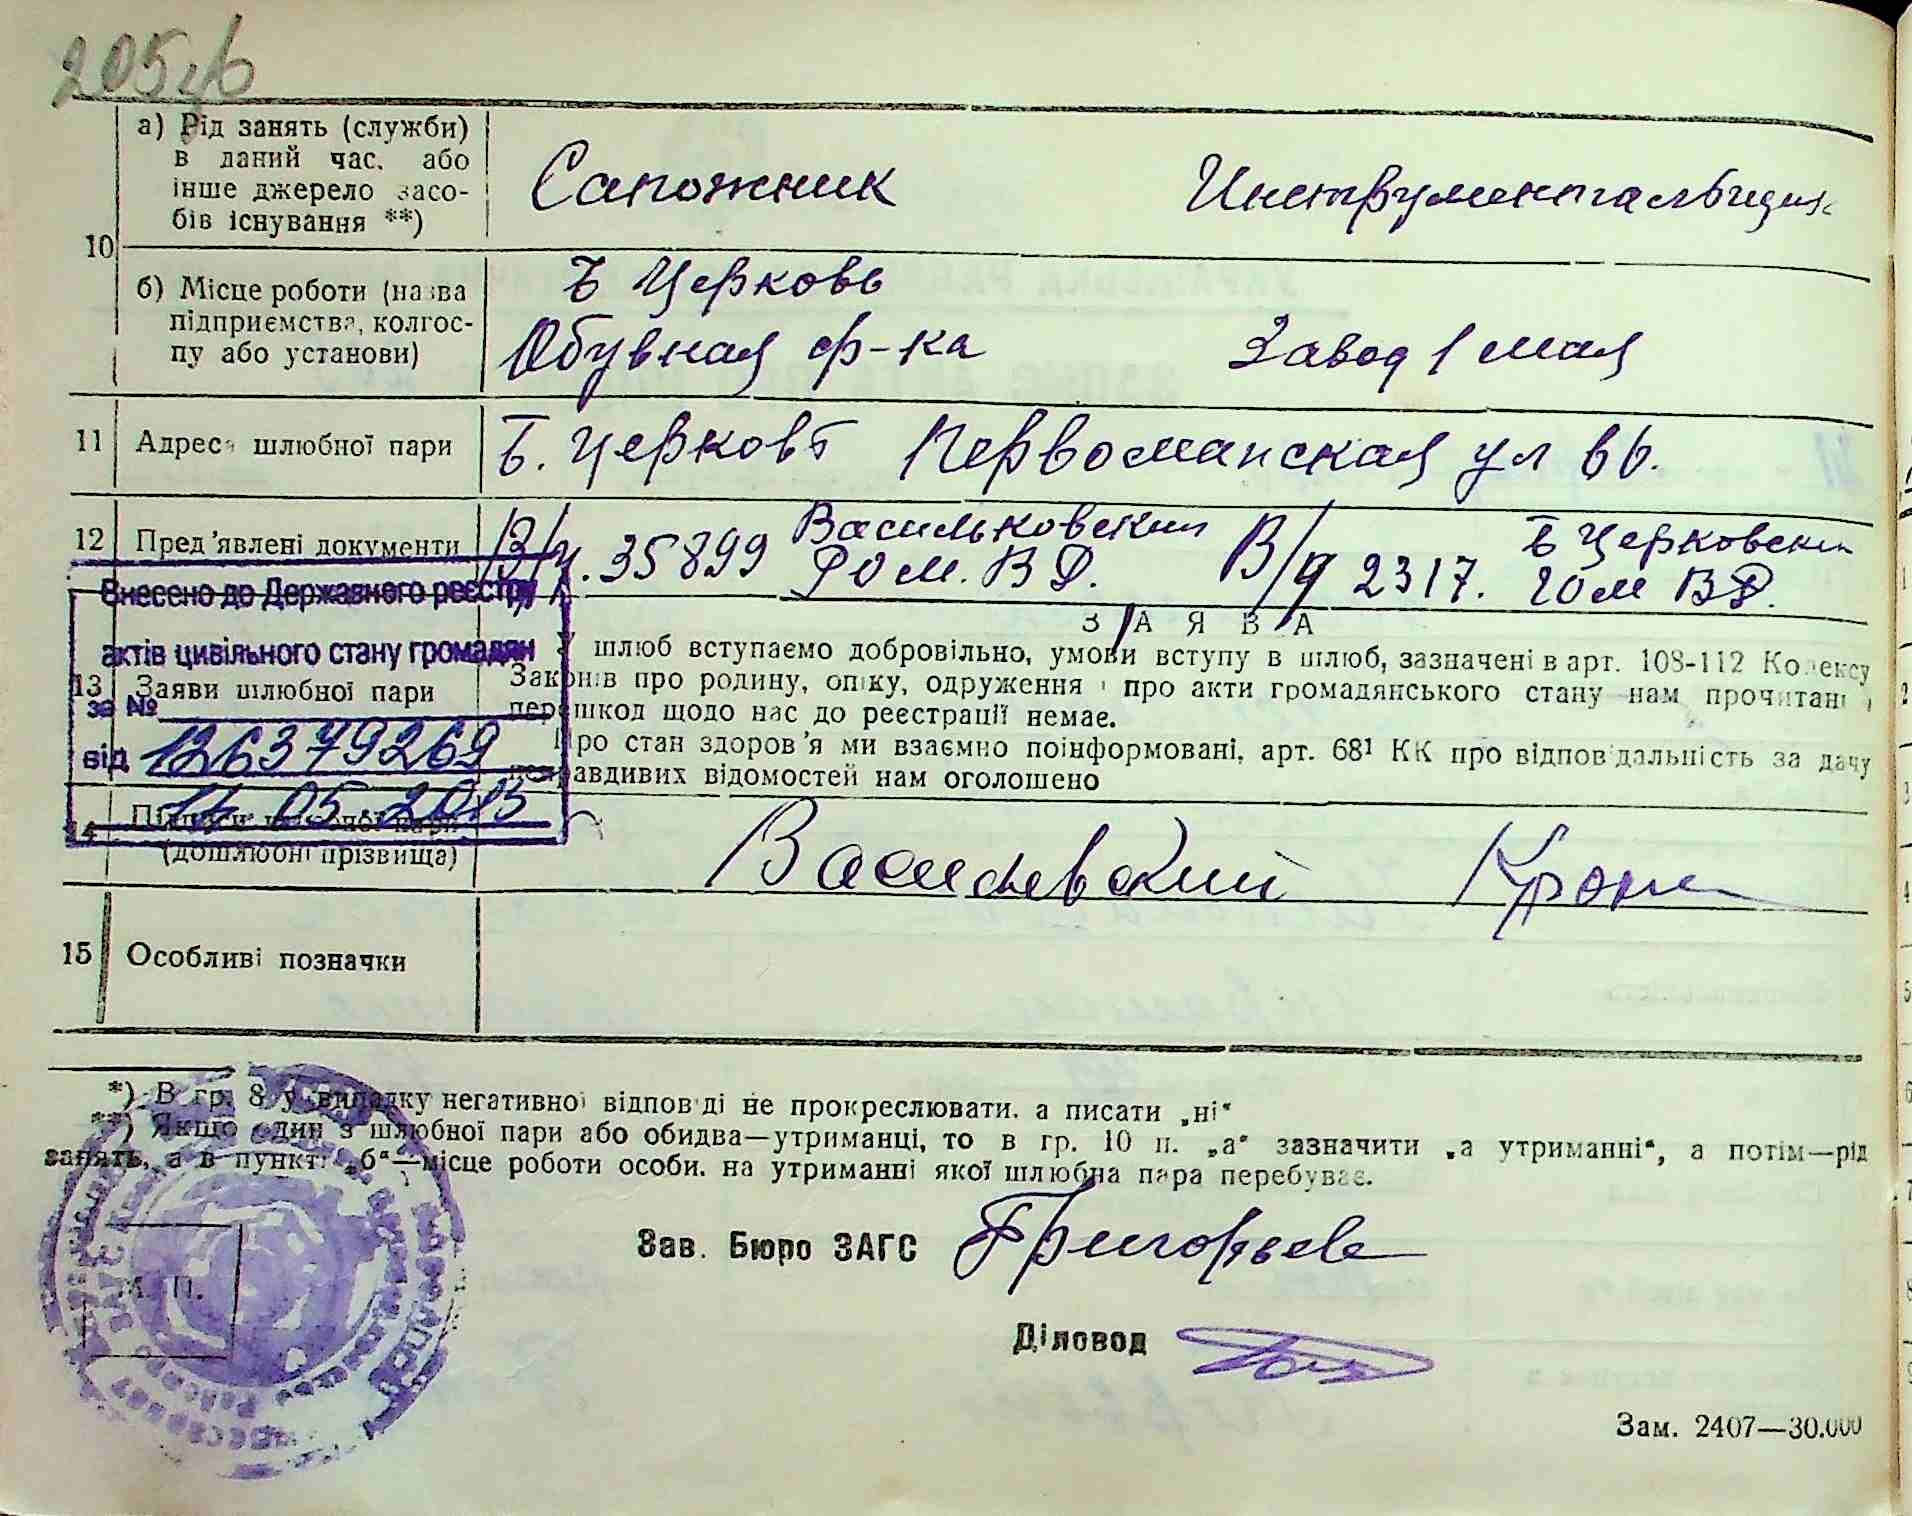 205
10
а) Рід занять (служби)
в даний час, або
інше джерело засо-
бів існування **)
Сапожник
Инструментальщик
б) Місце роботи (назва
підприємства, колгос-
пу або установи)
Б Церковь
Обувная ф-ка
Завод 1 мая
11
Адреса шлюбної пари
Б. Церковь Первомайская ул 66.
12
Пред'явлені документи
35899 Васильковский
РО М. В Д.
В/я 2317. Б Церковский
ГО М ВД.
ЗАЯВА
Внесено до Державного реєстру
актів цивільного стану громадян
за №
від 126379269
14 05. 2013
13
Заяви шлюбної пари
У шлюб вступаємо добровільно, умови вступу в шлюб, зазначені в арт. 108-112 Кодексу
Законів про родину, опіку, одруження і про акти громадянського стану нам прочитані і
перешкод щодо нас до реєстрації немає.
Про стан здоров'я ми взаємно поінформовані, арт. 68¹ КК про відповідальність за дачу
неправдивих відомостей нам оголошено
14
Підписи шлюбної пари
(дошлюбні прізвища)
Васильевский
15
Особливі позначки
*) В гр. 8 у випадку негативної відповіді не прокреслювати, а писати „ні“
**) Якщо один з шлюбної пари або обидва—утриманці, то в гр. 10 п. „а“ зазначити „а утриманні“, а потім—рід
занять, а в пункті „б“—місце роботи особи, на утриманні якої шлюбна пара перебуває.
М. П.
Зав. Бюро ЗАГС Григорьева
Діловод
Зам. 2407—30.000